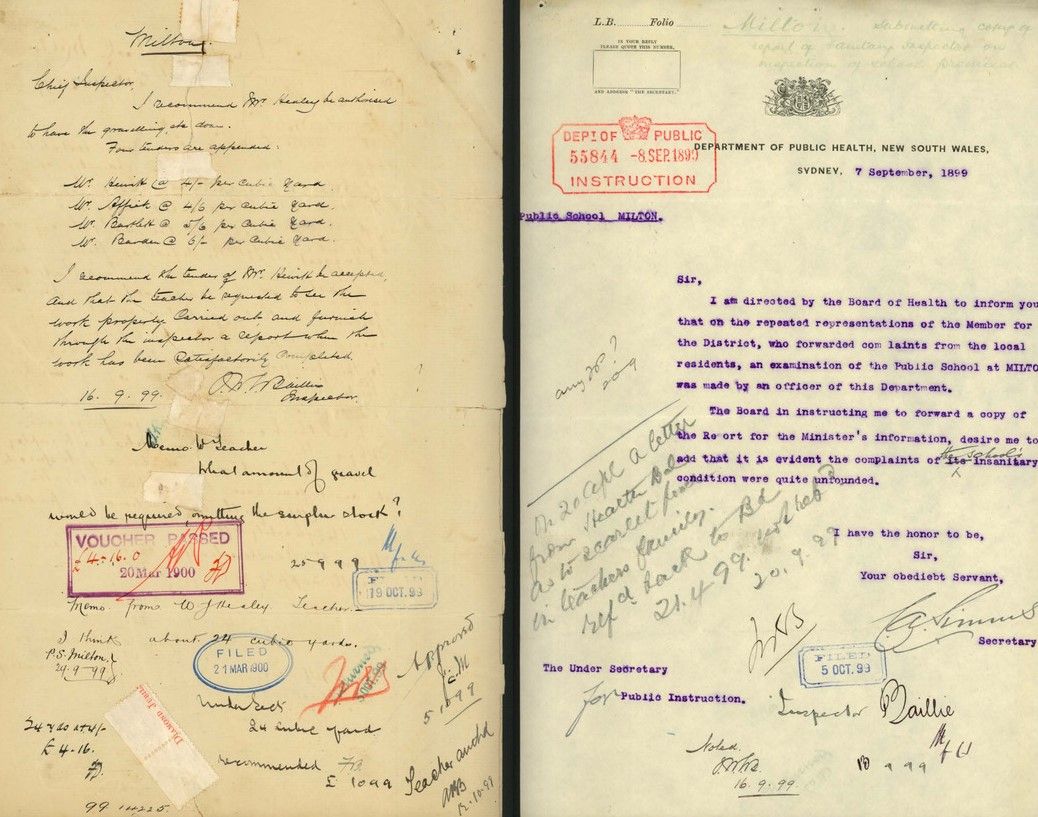 Milton.
Chief Inspector,
I recommend Mr. Healey be authorised
to have the gravelling, etc done.
Four tenders are appended:
Mr. Hewitt @ 4/- per cubic yard.
Mr. Affick @ 4/6 per cubic yard.
Mr. Bartlett @ 5/6 per cubic yard.
Mr. Barden @ 6/- per cubic yard.
I recommend the tender of Mr. Hewitt be accepted,
and that the teacher be requested to see the
work properly carried out and furnish
through the inspector a report when the
work has been satisfactorily completed.
Inspector.
16.9.99.
Memo. to Teacher
What amount of gravel
would be required, omitting the surplus stock?
VOUCHER PASSED
£4-16.0
20 Mar 1900
25 9 99
FILED
19 OCT. 99
Memo from W J Healey Teacher.
I think about 24 cubic yards.
P.S. Milton,
29-9-99
FILED
21 MAR 1900
Approved
5.10.99
Under Sec
24 yds at 4/-
£4-16.
24 cubic yard
recommended
Teacher authd
12.10.99
DIAMOND JUBIL
L.B. Folio
Milton Submitting copy of
report of Sanitary Inspector on
inspection of school premises
IN YOUR REPLY
PLEASE QUOTE THIS NUMBER,
AND ADDRESS "THE SECRETARY."
DEPT OF PUBLIC
55844 -8.SEP.1899
INSTRUCTION
DEPARTMENT OF PUBLIC HEALTH, NEW SOUTH WALES,
SYDNEY, 7 September, 1899
Public School MILTON.
Sir,
I am directed by the Board of Health to inform you
that on the repeated representations of the Member for
the District, who forwarded com laints from the local
residents, an examination of the Public School at MILTO
was made by an officer of this Department.
The Board in instructing me to forward a copy of
the Re ort for the Minister's information, desire me to
the school's
add that it is evident the complaints of its insanitary
condition were quite unfounded.
I have the honor to be,
Sir,
Your obediebt Servant,
Secretary
On 20 Apl a letter
from Health Bd
as to scarlet fever
in teachers family.
ref'd back to Bd
21.4.99. not heb?
20.9.99
FILED
5 OCT. 99
The Under Secretary
for Public Instruction.
Inspector Baillie
Noted.
16.9.99